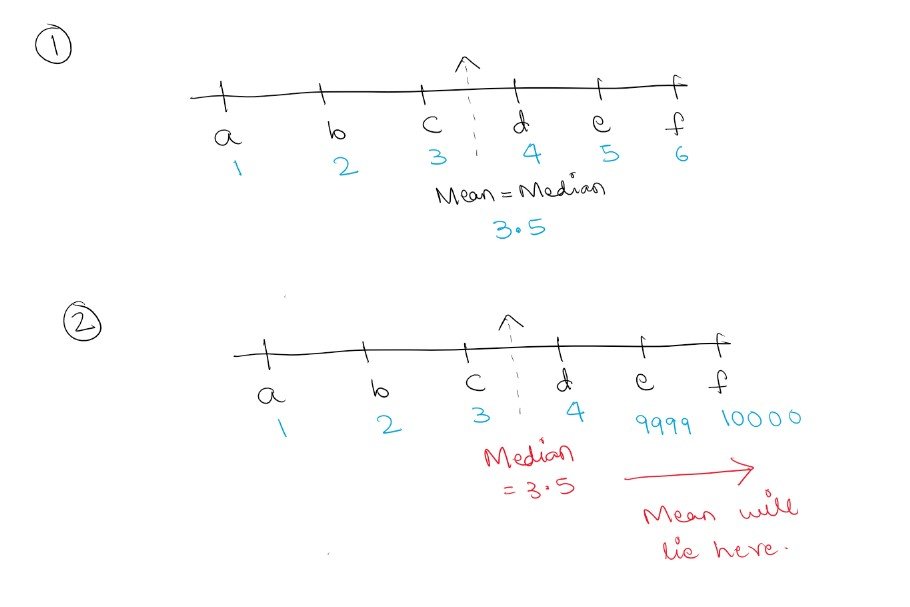 1
a b c d e f
1 2 3 4 5 6
Mean = Median
3.5
2
a b c d e f
1 2 3 4 9999 10000
Median
= 3.5
Mean will
lie here.